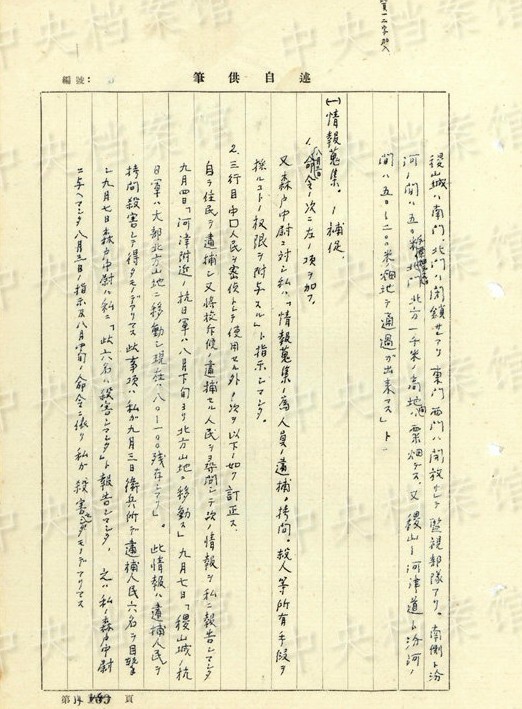 述自供筆
編號：
稷山城ハ南門、北門ハ閉鎖セラレ東門西門ハ開放サレテ監視部隊アリ。南側ト汾
河ノ間ハ五〇米 北門北方一千米ノ高地ハ粟畑デス。又稷山ー河津道ト汾河ノ
間ハ五〇ー二〇〇米畑地デ通過ガ出来マス」ト
(一)情報蒐集。ノ補促。
1.命令ノ次ニ左ノ項ヲ加フ。
又森戸中尉ニ対シ私ハ「情報蒐集ノ為人員ノ逮捕。拷問。殺人等所有手段ヲ
採ルコトノ权限ヲ附与スル」ト指示シマシタ。
2.三行目中口人民ヲ密偵トシテ使用セル外ノ次ヲ以下ノ如ク訂正ス.
自ラ住民ヲ逮捕シ又将校斥候ノ逮捕セル人民ヲ尋問シテ次ノ情報ヲ私ニ報告シマシタ
九月四日「河津附近ノ抗日軍ハ八月下旬ヨリ北方山地ニ移動ス」九月七日「稷山城ノ抗
日軍ハ大部北方山地ニ移動シ現在ハ八〇ー一〇〇残存シアリ」。此情報ハ逮捕人民ヲ
拷問殺害シテ得タモノデアリマス 此事項ハ私ガ九月三日衛兵所デ逮捕人民六名ヲ目撃
シ九月七日森戸中尉ハ私ニ「此六名ハ殺害シマシタ」ト報告シマシタ。之ハ私ノ森戸中尉
ニ与ヘマシタ八月三日ノ指示及八月中旬ノ命令ニ依リ私ガ殺害シタモノデアリマス
第 頁
中央档案馆